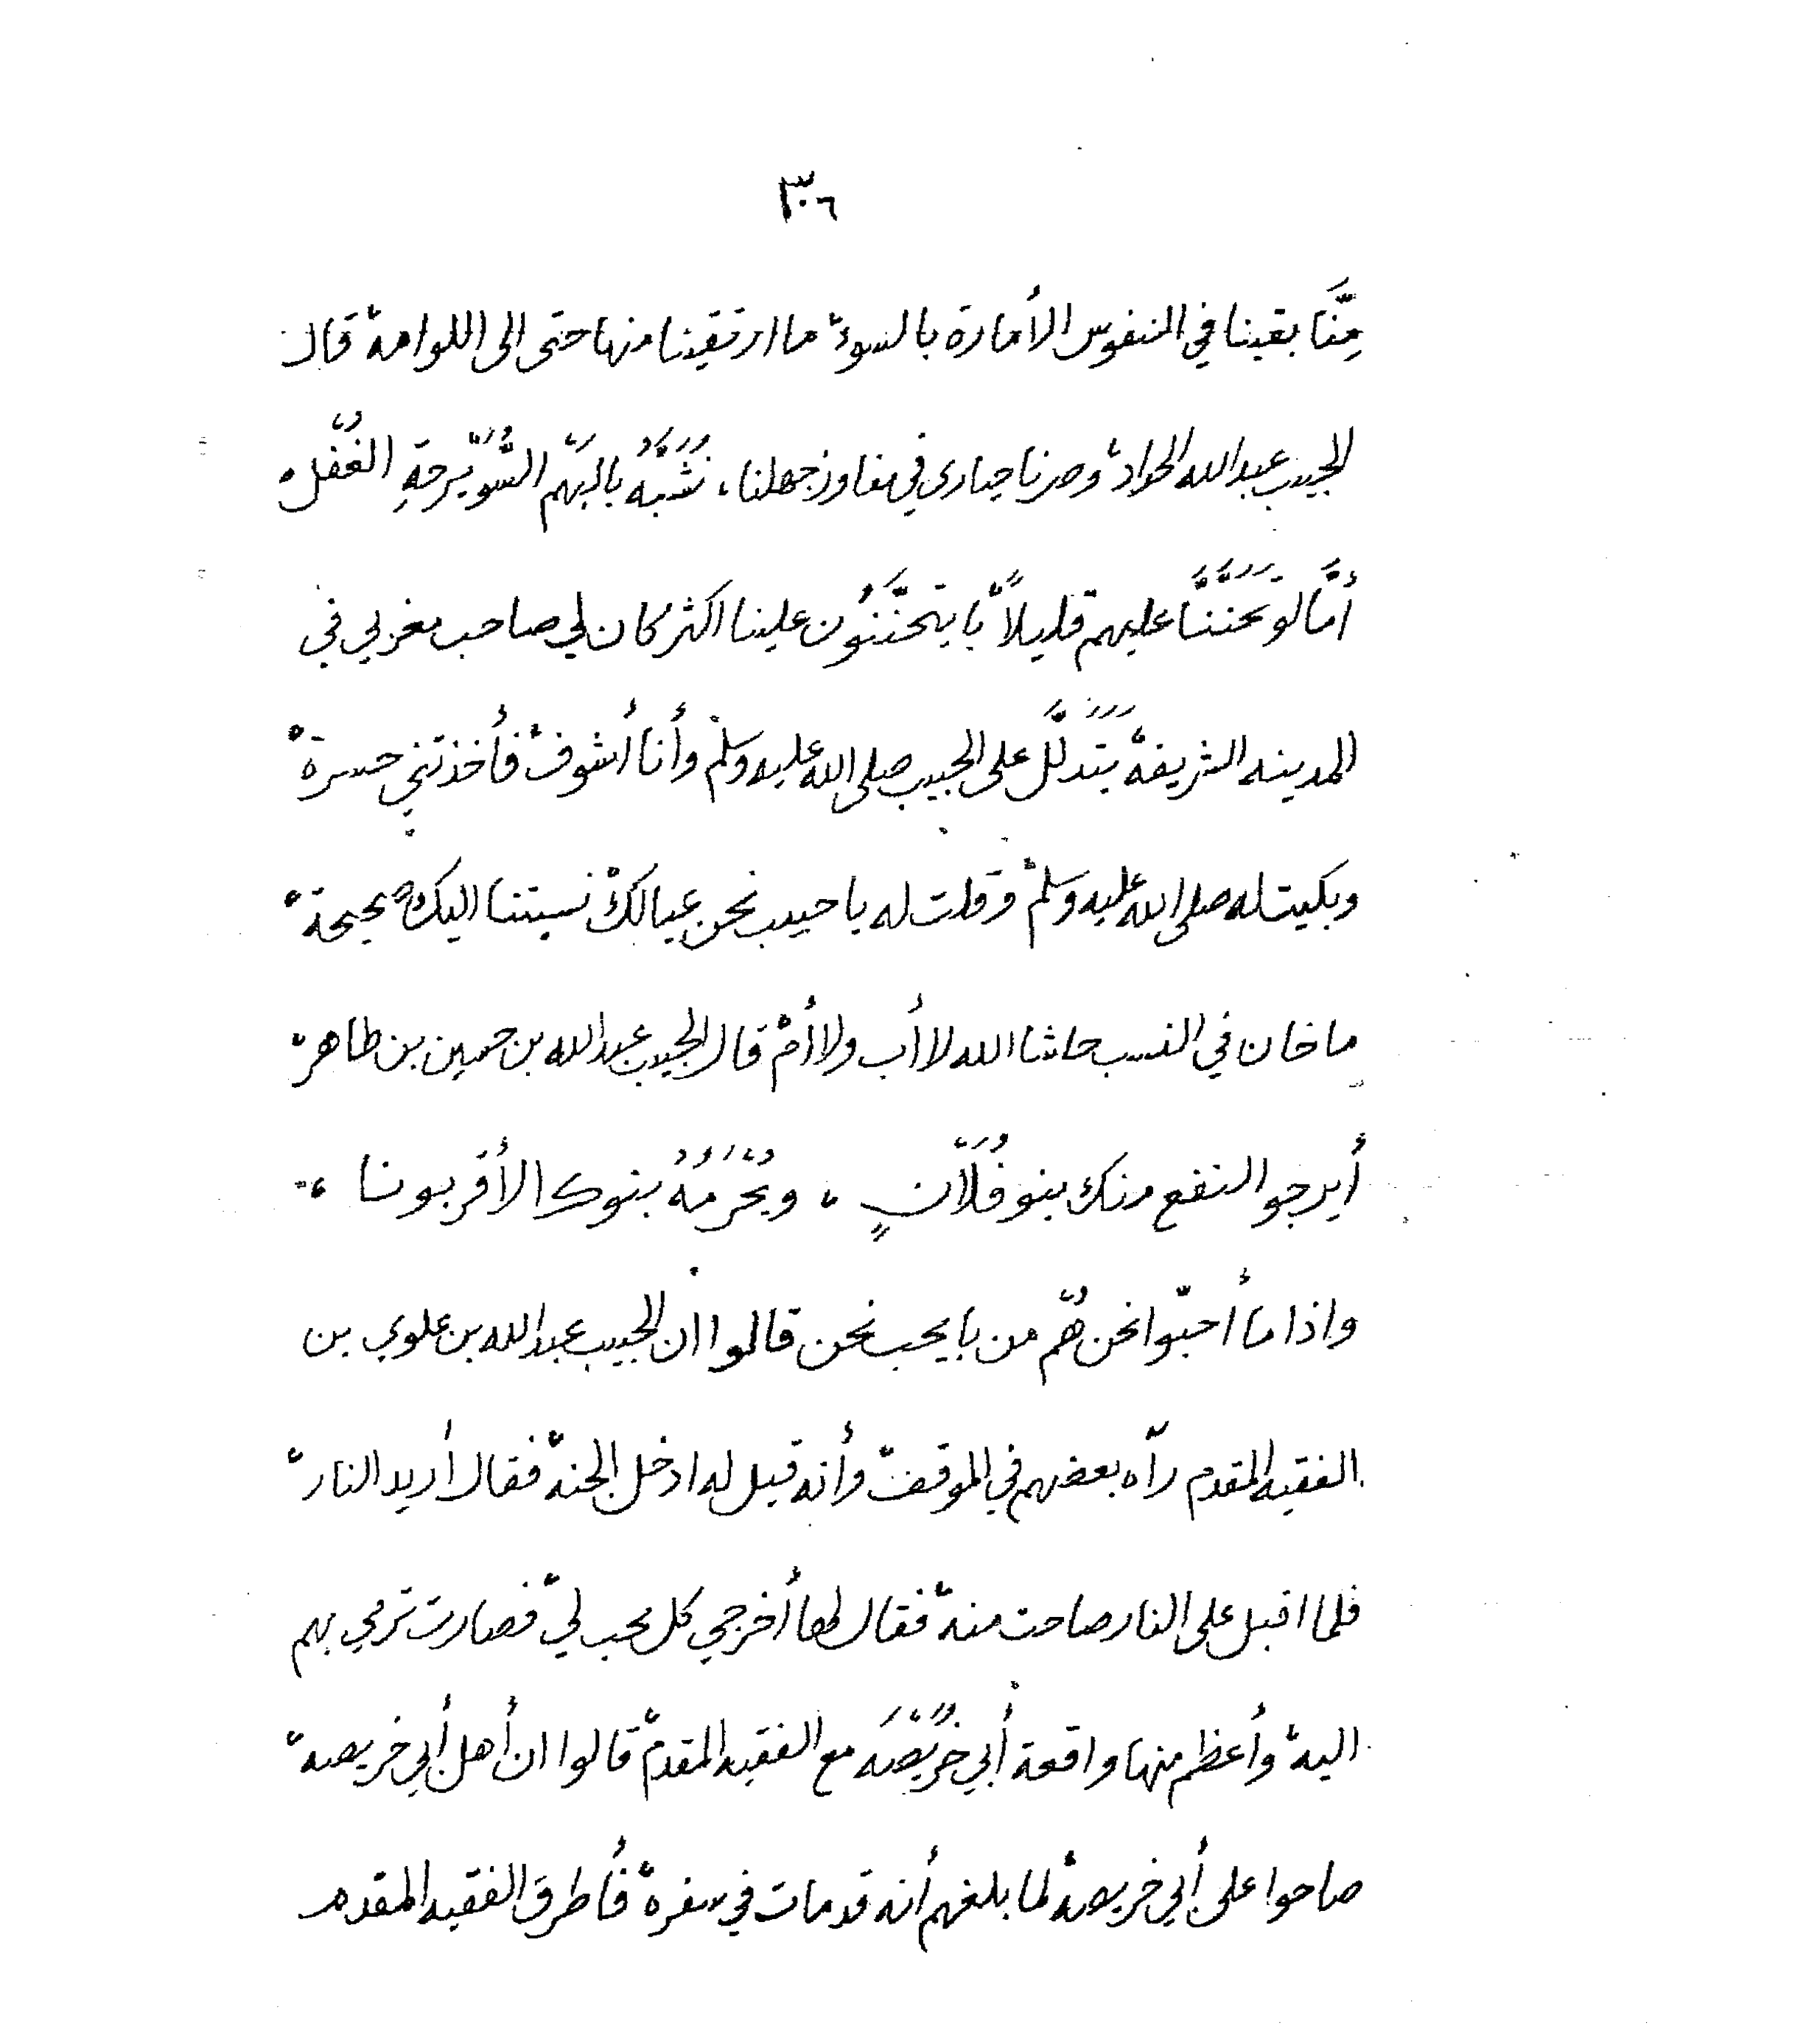 ٣٠٦
مِنَّا بقينا في النفوس الأمارة بالسوء، ما ارتقينا منها حتى الى اللوامة، قال
الحبيب عبدالله الحداد، وصرنا حيارى في مفاوز جهلنا، نُشَبَّهُ بالبهَم السُّوَيْرحةِ الغُفْل،
أمَّا لو تحَنَّنَّا عليهم قليلاً بَا يتحنَّنُون علينا اكثر كان لي صاحب مغربي في
المدينه الشريفة، يَتَدلَّل على الحبيب صلى الله عليه وسلم، وأنا أشوف، فأخذتني حسرة،
وبكيت له صلى الله عليه وسلم، وقلت له يا حبيب نحن عيالك، نسبتنا اليك صحيحة،
ما خان في النسب حاشا الله لا أب ولا أم، قال الحبيب عبدالله بن حسين بن طاهر،
أيرجو النفع منك بنو فُلَانٍ ، ويُحْرَمُهُ بنوك الأقربونا ،
واذا ما أحبّوا نحن هُم من با يحب نحن قالوا ان الحبيب عبدالله بن علوي بن
الفقيه المقدم رآه بعضهم في الموقف، وأنه قيل له ادخل الجنة، فقال أريد النار،
فلما اقبل على النار صاحت منه، فقال لها أخرجي كل محب لي، فصارت ترمي بهم
اليه، وأعظم منها واقعة أبي خُرَيْصَه مع الفقيه المقدم، قالوا ان أهل أبي خريصه،
صاحوا على أبي خريصه، لما بلغهم أنه قد مات في سفره، فأطرق الفقيه المقدم